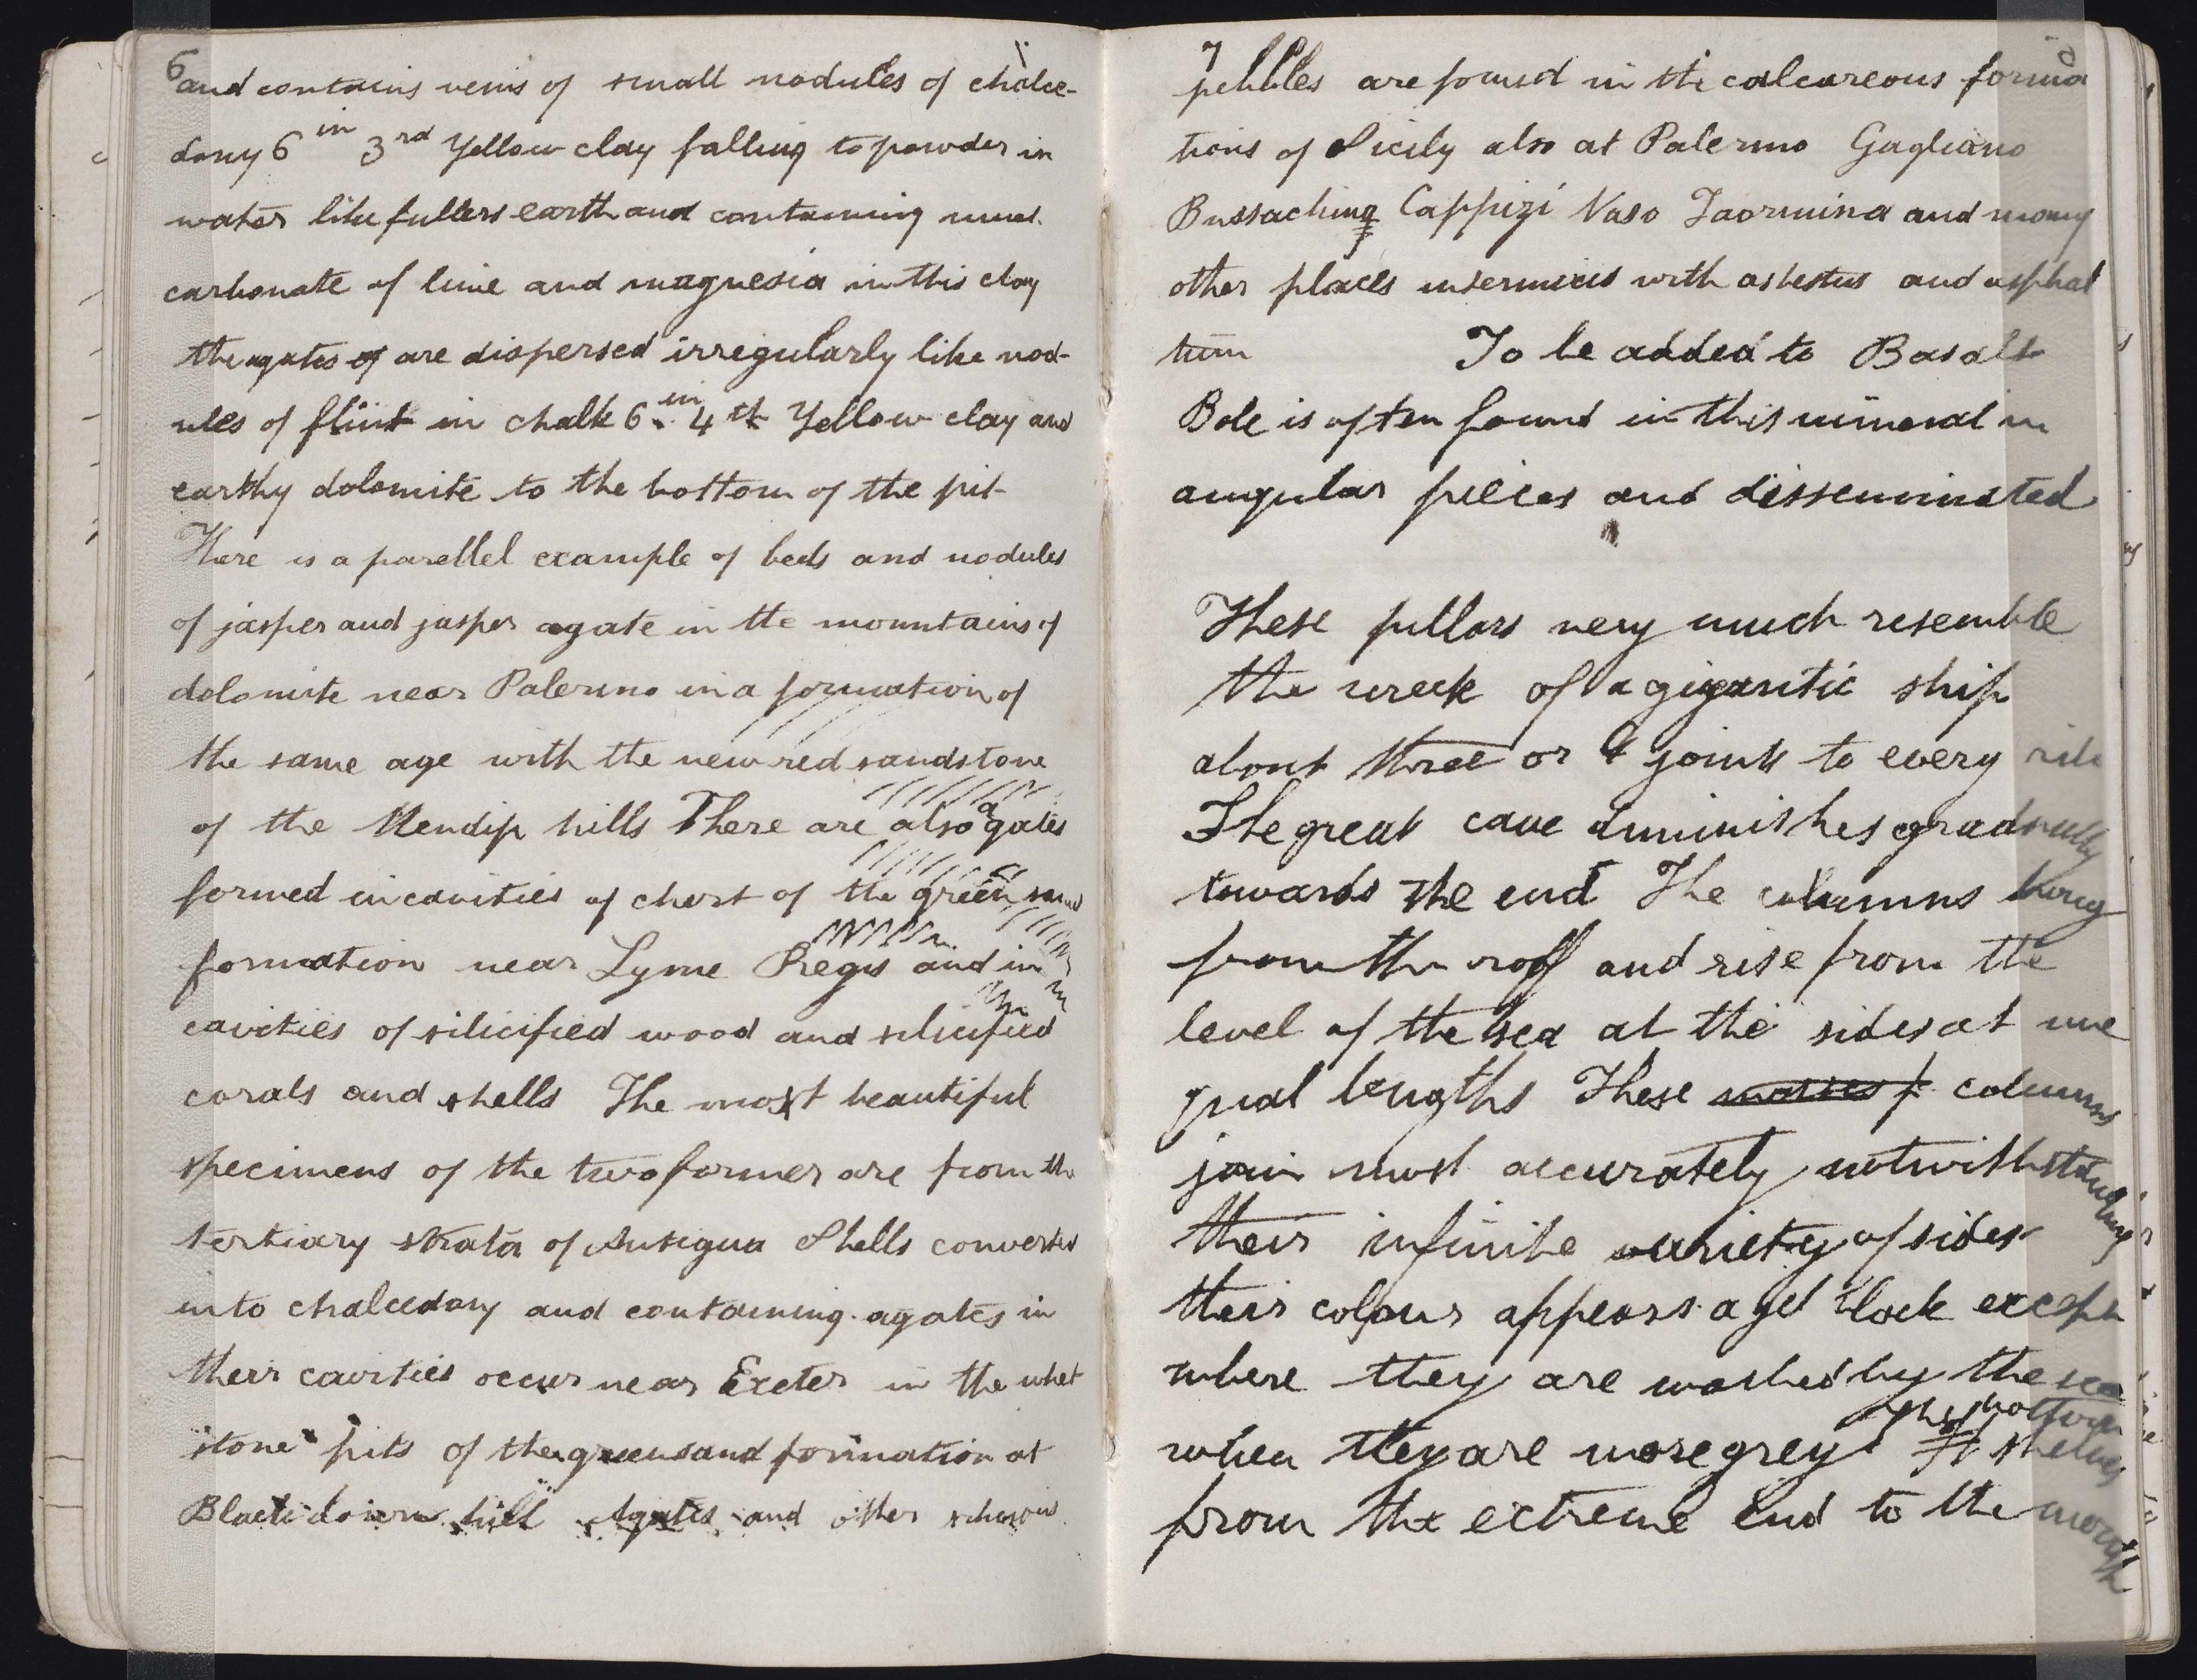 6
and contains veins of small nodules of chalce-
dony 6 in 3rd Yellow clay falling to powder in
water like fullers earth and containing much
carbonate of lime and magnesia in this clay
the agates are dispersed irregularly like nod-
ules of flint in chalk 6 in 4th Yellow clay and
earthy dolomite to the bottom of the pit
There is a parellel example of beds and nodules
of jasper and jasper agate in the mountains of
dolomite near Palermo in a formation of
the same age with the new red sandstone
of the Mendip hills There are also agates
formed in cavities of chert of the green sand
formation near Lyme Regis and in
cavities of silicified wood and silicified
corals and shells The most beautiful
specimens of the two former are from the
tertiary strata of Antigua Shells converted
into chalcedony and containing agates in
their cavities occur near Exeter in the whet
stone pits of the greensand formation at
Black down hill Agates and other
7
pebbles are found in the calcareous forma
tions of Sicily also at Palermo Gagliano
Bussaching Cappizi Naso Taormina and many
other places intermixed with asbestus and asphal
tum To be added to Basalt
Bole is often found in this mineral in
angular pieces and disseminated
These pillars very much resemble
the wreck of a gigantic ship
about three or 4 joints to every rib
The great cave diminishes gradually
towards the end The columns hung
from the roof and rise from the
level of the sea at the sides at une
qual lengths These masses f columns
join most accurately notwithstanding
their infinite variety of sides
their colour appears a jet black except
where they are washed by the sea
the bottom
when they are more grey It shelves
from the extreme end to the mouth